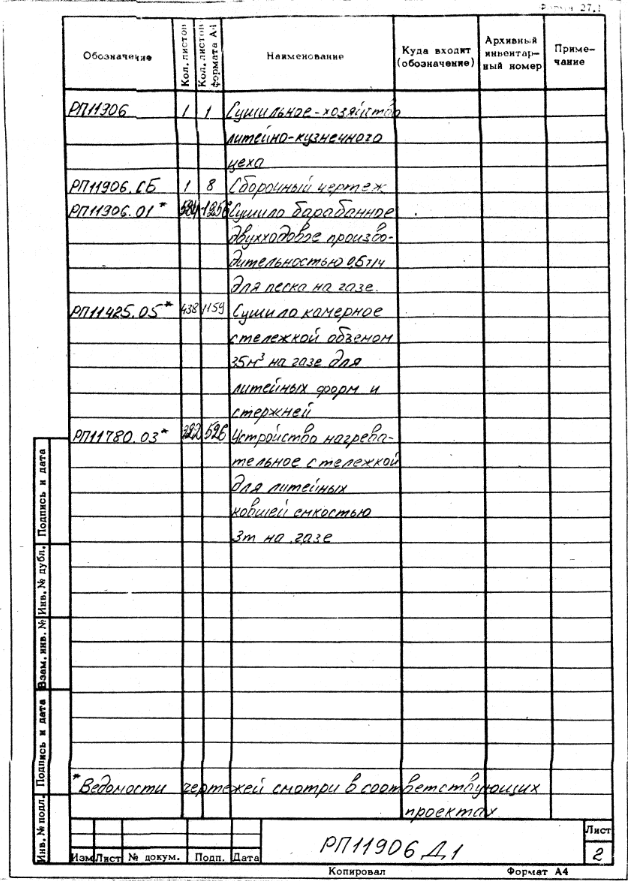 Форма 27.1
Обозначение Кол. листов Кол. листов формата А4 Наименование Куда входит (обозначение) Архивный инвентарный номер Примечание
РП11306 1 1 Сушильное хозяйство
литейно-кузнечного
цеха
РП11906.СБ 1 8 Сборочный чертеж
РП11306.01* Сушило барабанное
двухходовое произво-
дительностью 0,5 т/ч
для песка на газе.
РП11425.05* 438 1159 Сушило камерное
с тележкой объемом
35м³ на газе для
литейных форм и
стержней
РП11780.03* 526 Устройство нагрева-
тельное с тележкой
для литейных
ковшей емкостью
3т на газе
* Ведомости чертежей смотри в соответствующих
проектах
Подпись и дата
Инв. № дубл.
Взам. инв. №
Подпись и дата
Инв. № подл.
Изм Лист № докум. Подп. Дата
РП11906 Д.1
Лист
2
Копировал Формат А4